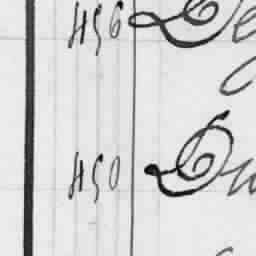 456 De
450 Du